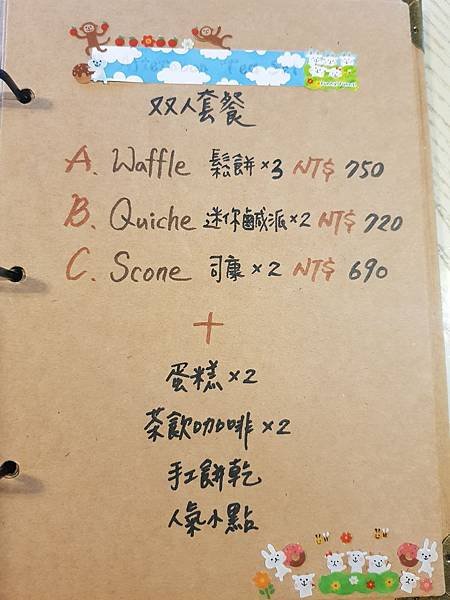 双人套餐
A. Waffle 鬆餅×3 NT$ 750
B. Quiche 迷你鹹派×2 NT$ 720
C. Scone 司康×2 NT$ 690
+
蛋糕×2
茶飲咖啡×2
手工餅乾
人氣小點